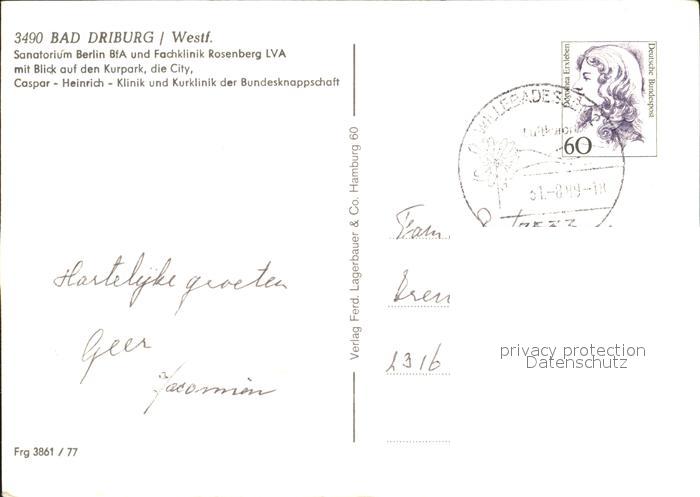 3490 BAD DRIBURG / Westf.
Sanatorium Berlin BfA und Fachklinik Rosenberg LVA
mit Blick auf den Kurpark, die City,
Caspar - Heinrich - Klinik und Kurklinik der Bundesknappschaft
Hartelijke groeten
Geer
Frg 3861 / 77
Verlag Ferd. Lagerbauer & Co. Hamburg 60
Dorothea Erxleben
Deutsche Bundespost
60
WILLEBADESSEN
Fam.
2316
privacy protection
Datenschutz